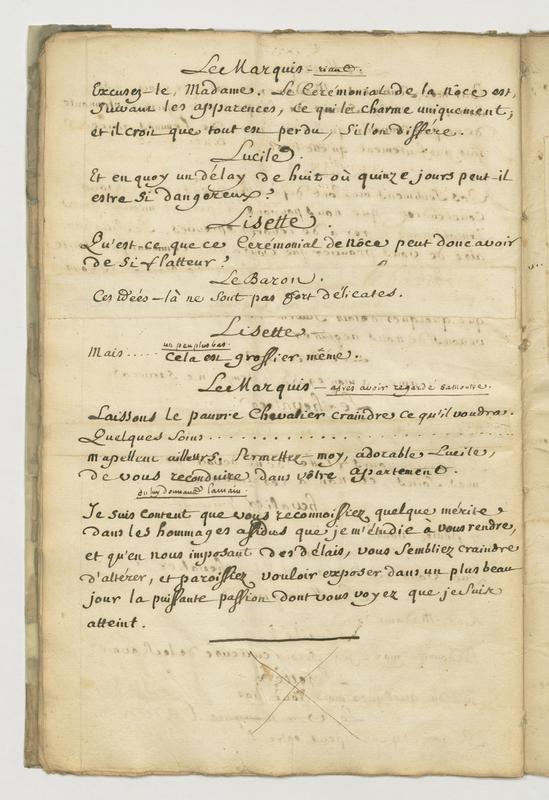 Le Marquis - riant.
Excusez-le, Madame. Le Cerémonial de la Nôce est,
Suivant les apparences, ce qui le charme uniquement;
et il croit que tout est perdu, Si l'on différe.
Lucile.
Et en quoy un délay de huit où quinze jours peut-il
estre Si dangereux?
Lisette.
Qu'est-ce que ce Cerémonial de Nôce peut donc avoir
de Si flatteur?
Le Baron.
Ces idées-là ne Sont pas fort délicates.
Lisette -
un peu plus bas.
Mais..... Cela est grossier, même.
Le Marquis - après avoir regardé Sa montre.
Laissons le pauvre Chevalier craindre ce qu'il voudra.
Quelques Soins . . . . . . . . . . . . . . . . .
m'apellent ailleurs. Permettez-moy, adorable Lucile,
de vous reconduire dans vôtre apartement.
en luy donnant la main.
Je suis content que vous reconnoissiez quelque mérite
dans les hommages assidus que je m'étudie à vous rendre,
et qu'en nous imposant des délais, vous Sembliez craindre
d'altérer, et paroissiez vouloir exposer dans un plus beau
jour la puissante passion dont vous voyez que je Suis
atteint.